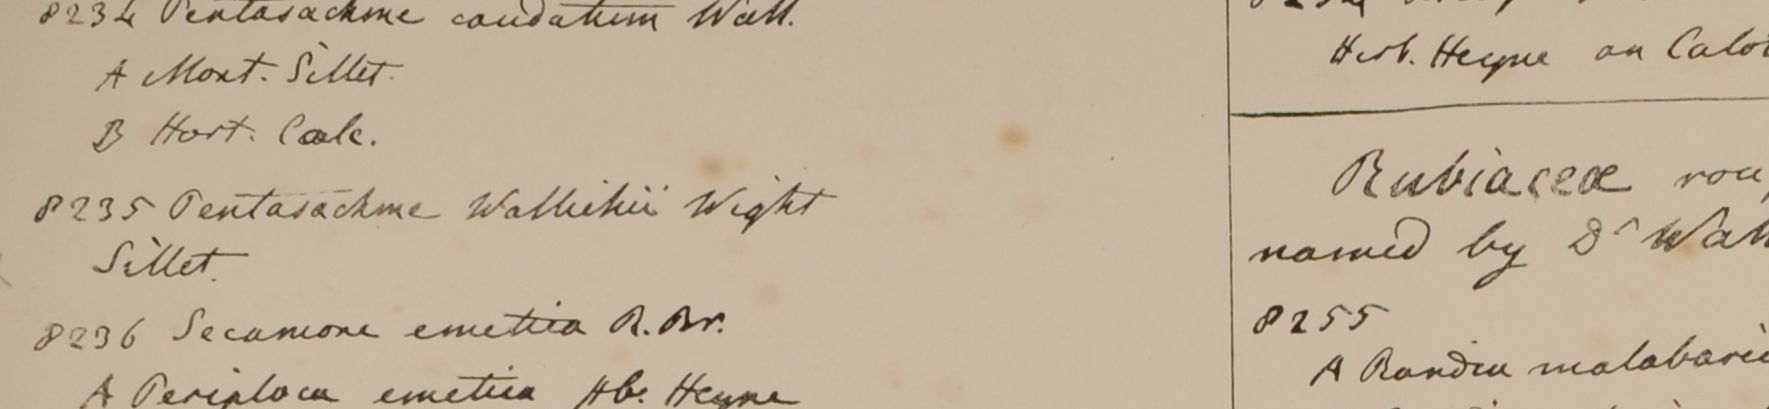 8234 Pentasachme caudatum Wall.
A Mont. Sillet.
B Hort. Calc.
8235 Pentasachme Wallichii Wight
Sillet.
8236 Secamone emetica R. Br.
A Periploca emetica Hb. Heyne
Herb. Heyne an
Rubiaceæ
named by Dr Wall
8255
A Randia malabaric